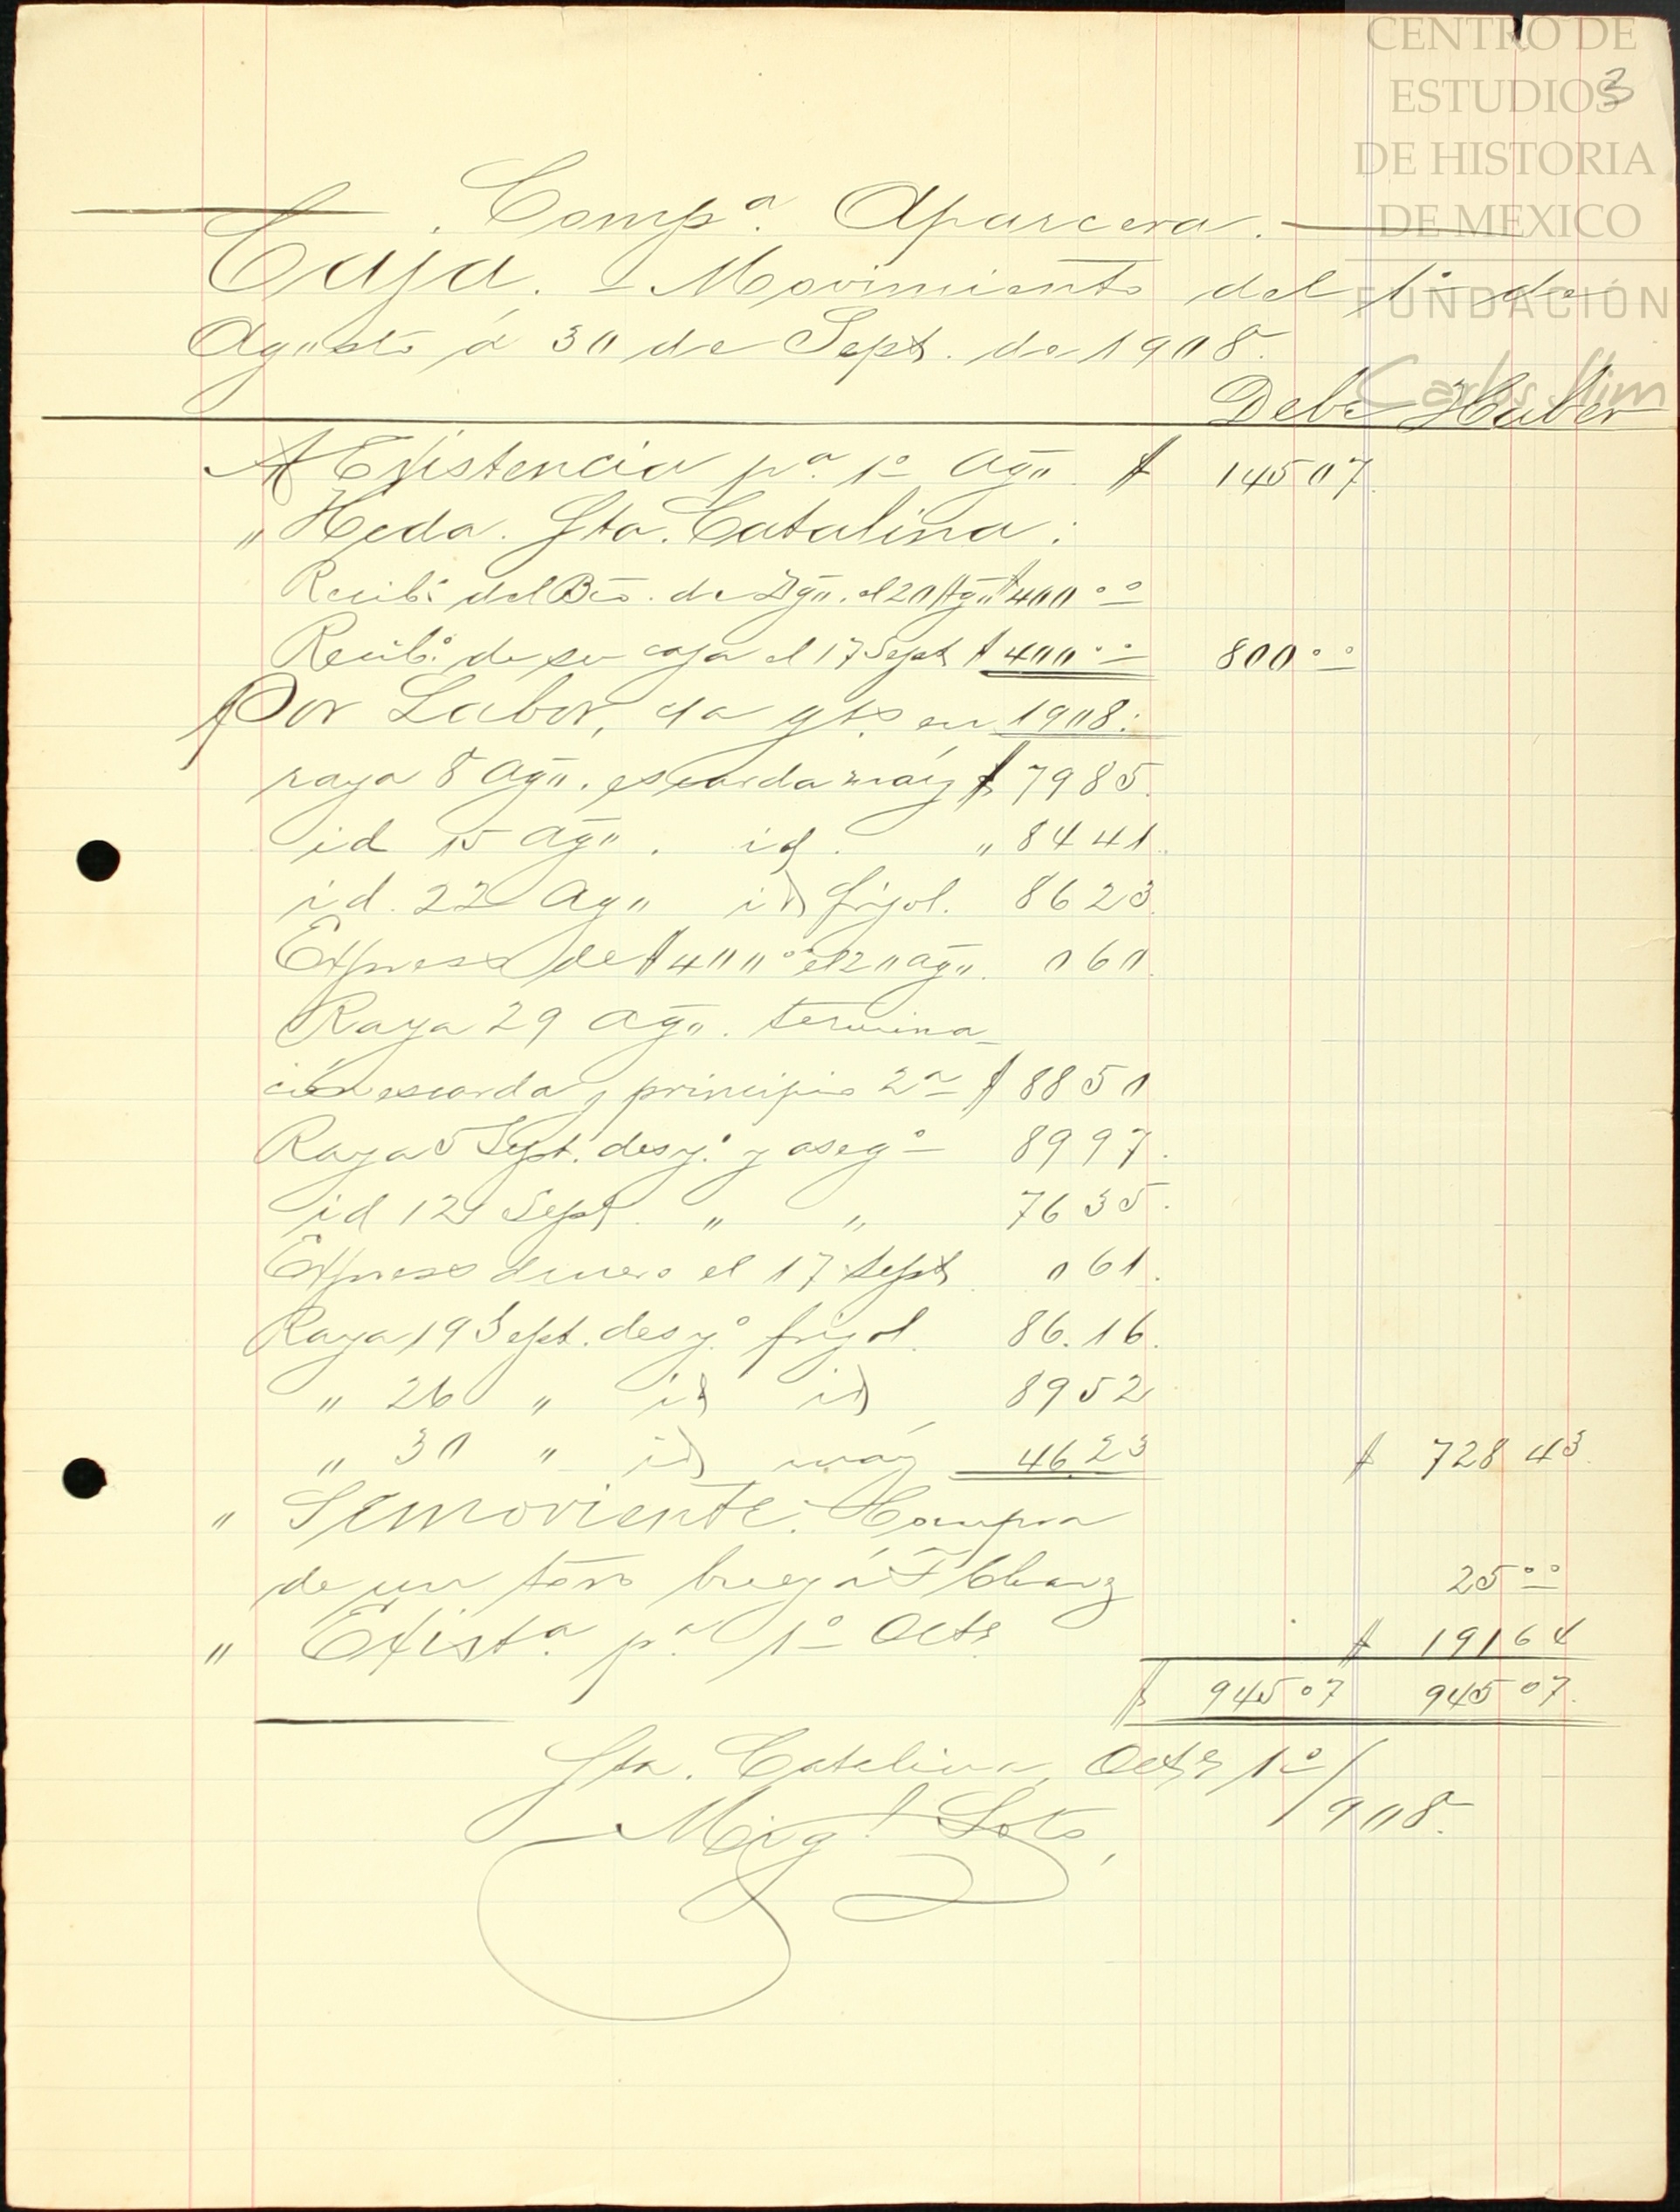 CENTRO DE
ESTUDIOS
DE HISTORIA
DE MEXICO
FUNDACIÓN
Carlos Slim
3
Compª. Aparcera.
Caja. - Movimiento del 1º de
Agosto á 30 de Sept. de 1908.
Debe Haber
A Existencia pª. 1º Ago. $ 145 07.
" Hcda. Sta. Catalina:
Recibº. del Bco. de Dgo. el 20 Ago $ 400 oo
Recibº. de su caja el 17 Sept $ 400 oo 800 oo
Por Labor, da gts en 1908:
raya 8 Ago. escarda maíz $ 79 85.
id 15 Ago. id. " 84 41.
id. 22 Ago id frijol. 86 23.
Express de $ 400 oo el 20 ago. 0 60.
Raya 29 Ago. termina-
ción escarda y principio 2ª $ 88 50
Raya 5 Sept. desyº. y asegº 89 97.
id 12 Sept. " " 76 35.
Express dinero el 17 Sept 0 61.
Raya 19 Sept. desyº frijol. 86.16.
" 26 " id id 89 52
" 30 " id maíz 46 23 $ 728 43.
" Semoviente. Compra
de un toro buey á F Chavz 25 oo
" Existª. pª. 1º Octe. $ 191 64
$ 945 07 945 07.
Sta. Catalina, Octe 1º/
908.
Migl. Soto,